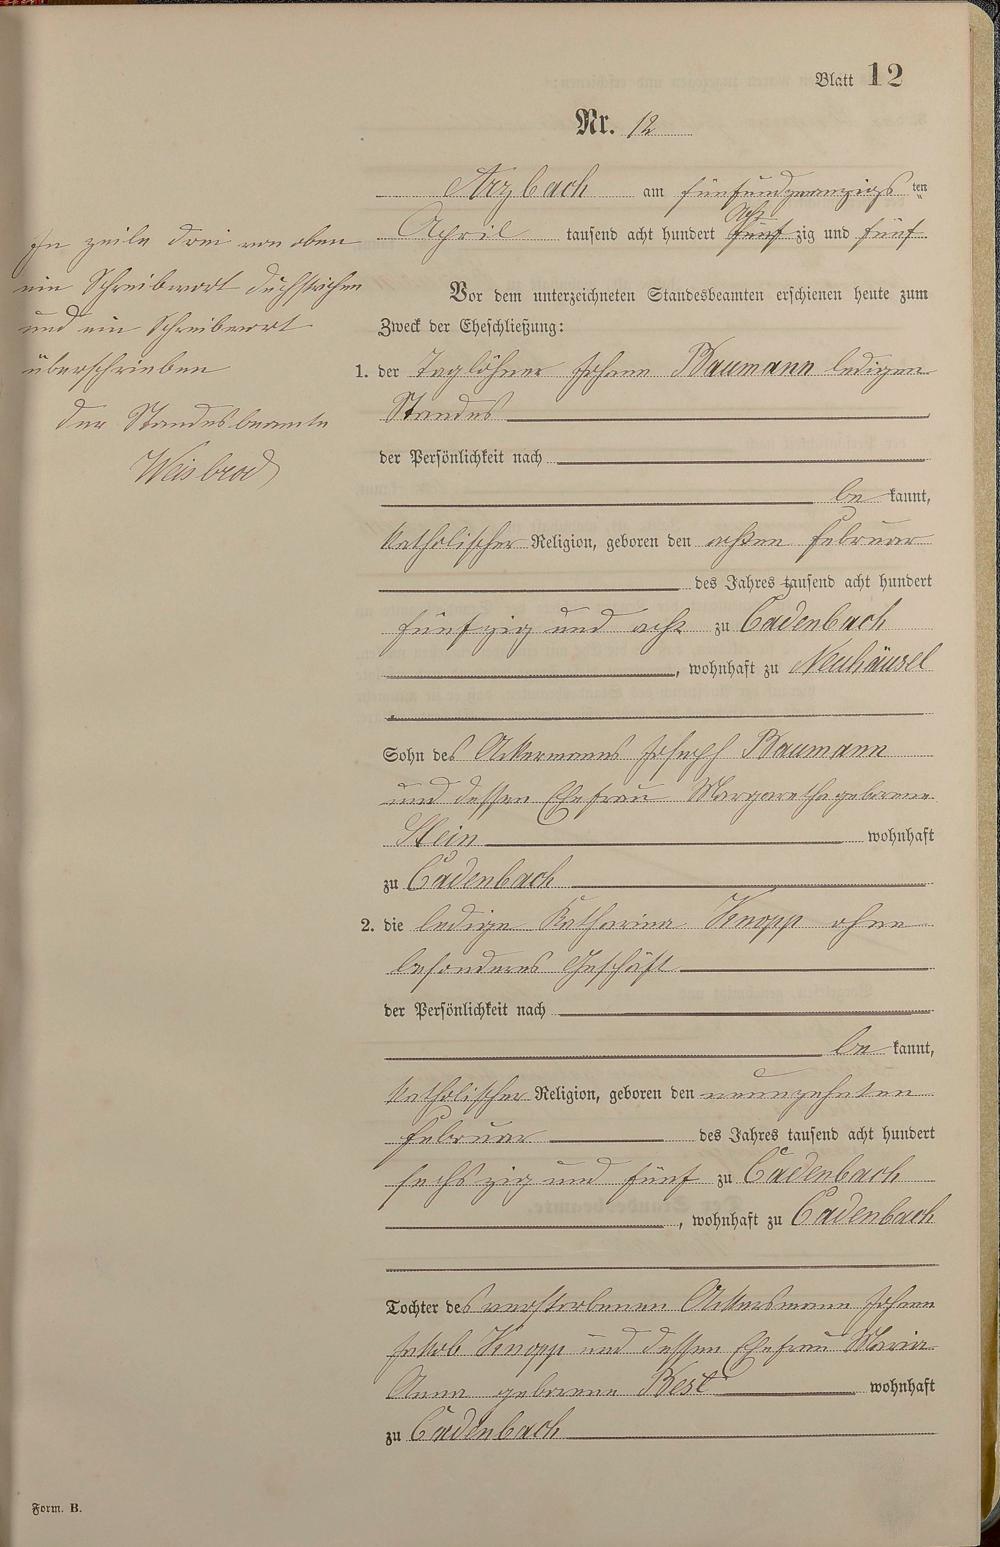 Blatt 12
Nr. 12
Arzbach am fünfundzwanzigsten
April tausend acht hundert fünf Acht zig und fünf
In zeile drei von oben
ein Schreibwort duchstrichen
und ein Schreibwort
überschrieben
der Standesbeamte
Weisbrod
Vor dem unterzeichneten Standesbeamten erschienen heute zum
Zweck der Eheschließung:
1. der Taglöhner Johann Baumann ledigen
Standes
der Persönlichkeit nach
be kannt,
katholischer Religion, geboren den achten Februar
des Jahres tausend acht hundert
fünfzig und acht zu Cadenbach
, wohnhaft zu Neuhäusel
Sohn des Ackermanns Joseph Baumann
und dessen Ehefrau Margaretha geborene
Stein wohnhaft
zu Cadenbach
2. die ledige Katharina Knopp ohne
besonderes Geschäft
der Persönlichkeit nach
be kannt,
katholischer Religion, geboren den neunzehnten
Februar des Jahres tausend acht hundert
sechszig und fünf zu Cadenbach
, wohnhaft zu Cadenbach
Tochter des verstorbenen Ackersmann Johann
Jakob Knopp und dessen Ehefrau Maria
Anna geborene Best wohnhaft
zu Cadenbach
Form. B.